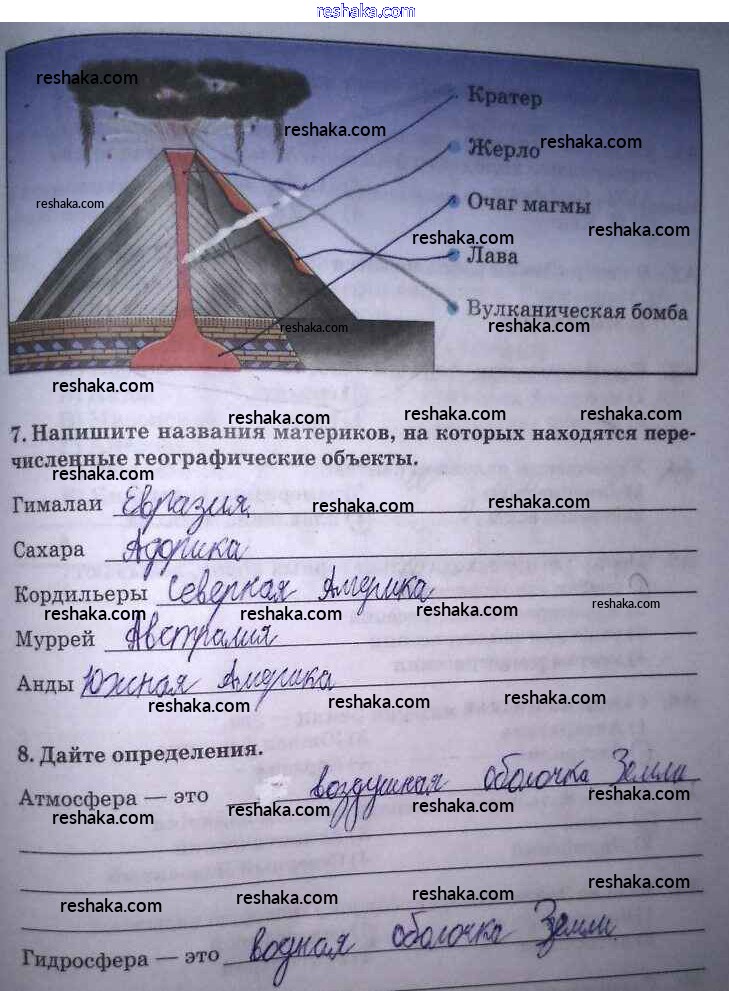 reshaka.com
reshaka.com
Кратер
reshaka.com
reshaka.com
Жерло
reshaka.com
Очаг магмы
reshaka.com
reshaka.com
Лава
Вулканическая бомба
reshaka.com
reshaka.com
reshaka.com
reshaka.com
reshaka.com
reshaka.com
7. Напишите названия материков, на которых находятся пере-
численные географические объекты.
reshaka.com
Гималаи Евразия
reshaka.com
reshaka.com
Сахара Африка
Кордильеры Северная Америка
reshaka.com
reshaka.com
reshaka.com
Муррей Австралия
Анды Южная Америка
reshaka.com
reshaka.com
reshaka.com
8. Дайте определения.
Атмосфера — это воздушная оболочка Земли
reshaka.com
reshaka.com
reshaka.com
reshaka.com
reshaka.com
reshaka.com
reshaka.com
reshaka.com
Гидросфера — это водная оболочка Земли